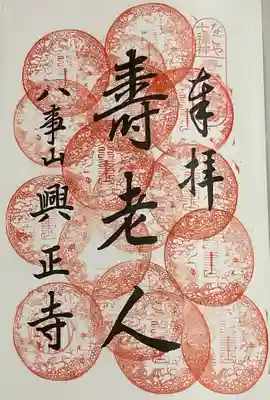 奉拝
壽老人
八事山 興正寺